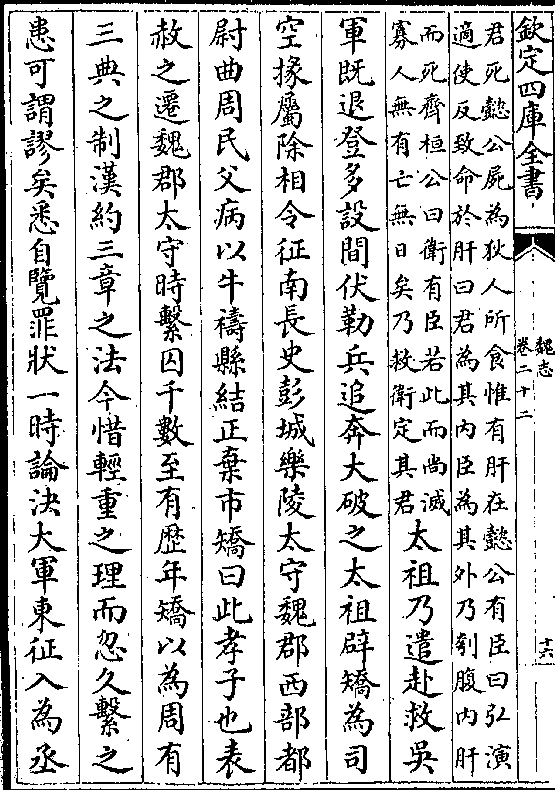 欽定四庫全書
魏志
卷二十二
十六
君死懿公屍為狄人所食惟有肝在懿公有臣曰弘演
適使反致命於肝曰君為其內臣為其外乃刳腹內肝
而死齊桓公曰衛有臣若此而尚滅
寡人無有亡無日矣乃救衛定其君
太祖乃遣赴救吳
軍既退登多設間伏勒兵追奔大破之太祖辟矯為司
空掾屬除相令征南長史彭城樂陵太守魏郡西部都
尉曲周民父病以牛禱縣結正棄市矯曰此孝子也表
赦之遷魏郡太守時繫囚千數至有歴年矯以為周有
三典之制漢約三章之法今惜輕重之理而忽久繫之
患可謂謬矣悉自覽罪狀一時論決大軍東征入為丞